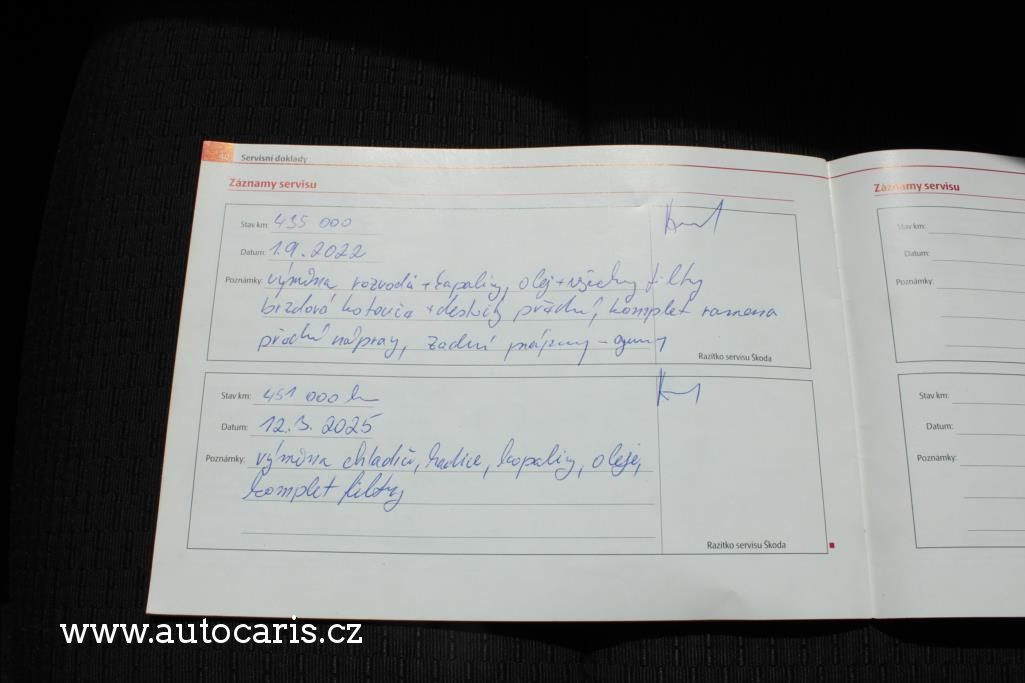 Servisní doklady
Záznamy servisu
Stav km: 435 000
Datum: 1.9.2022
Poznámky: výměna rozvodů + kapaliny, olej + všechny filtry
brzdová kotouče + destičky přední, komplet ramena
přední nápravy, zadní - gumy
Razítko servisu Škoda
Stav km: 451 000 km
Datum: 12.3.2025
Poznámky: výměna chladič, hadice, kapaliny, oleje,
komplet filtry
Razítko servisu Škoda
Záznamy servisu
Stav km:
Datum:
Poznámky:
Stav km:
Datum:
Poznámky:
www.autocaris.cz